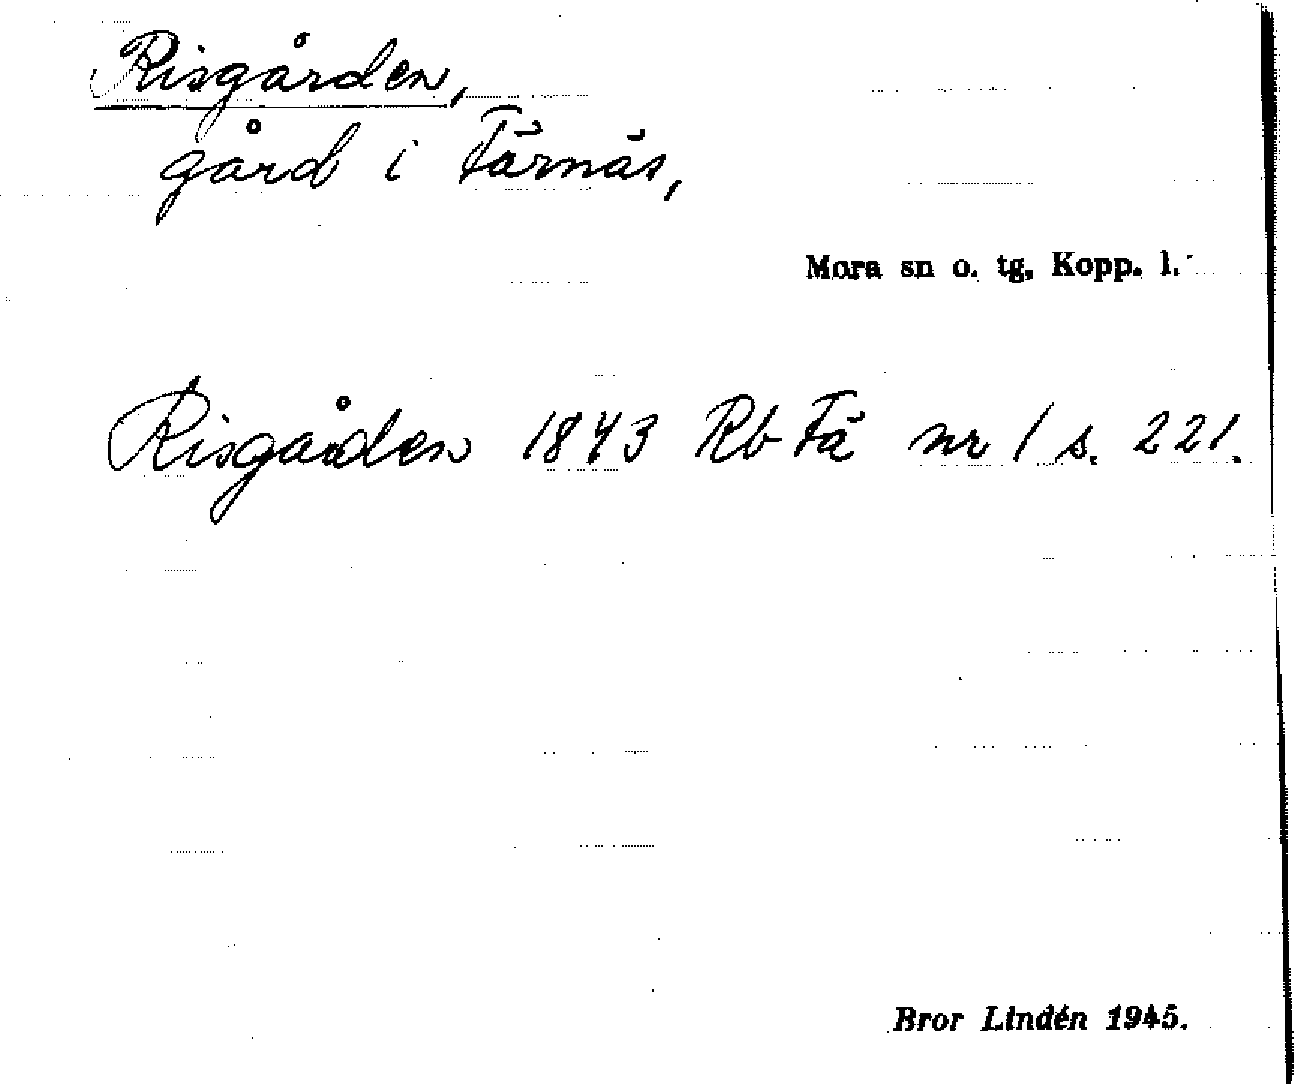 Risgården,
gård i Färnäs,
Mora sn o. tg, Kopp. l.
Risgården 1843 Rb Fä nr 1 s. 221.
Bror Lindén 1945.